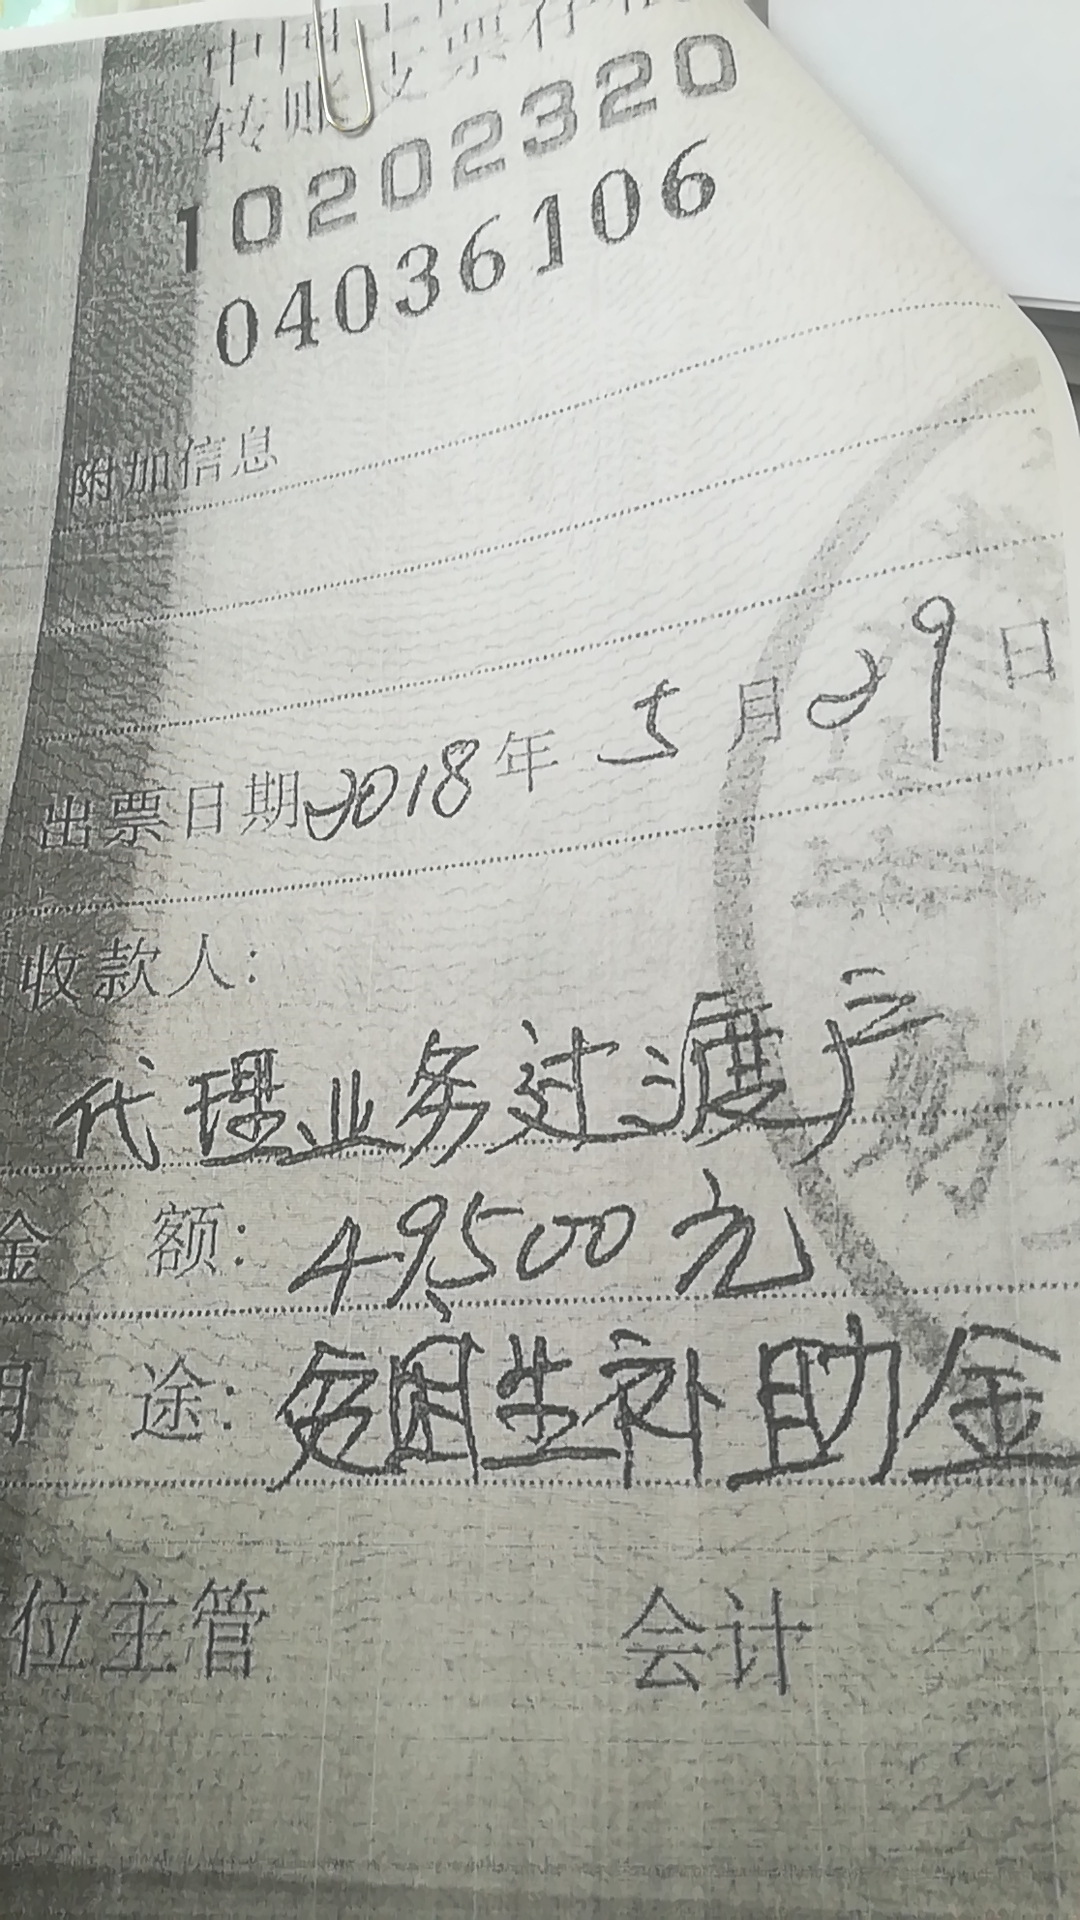 中国工
转账支票存根
10202320
04036106
附加信息
出票日期2018年5月29日
收款人:
代理业务过渡户
金 额: 49500元
用 途: 贫困生补助金
位主管 会计